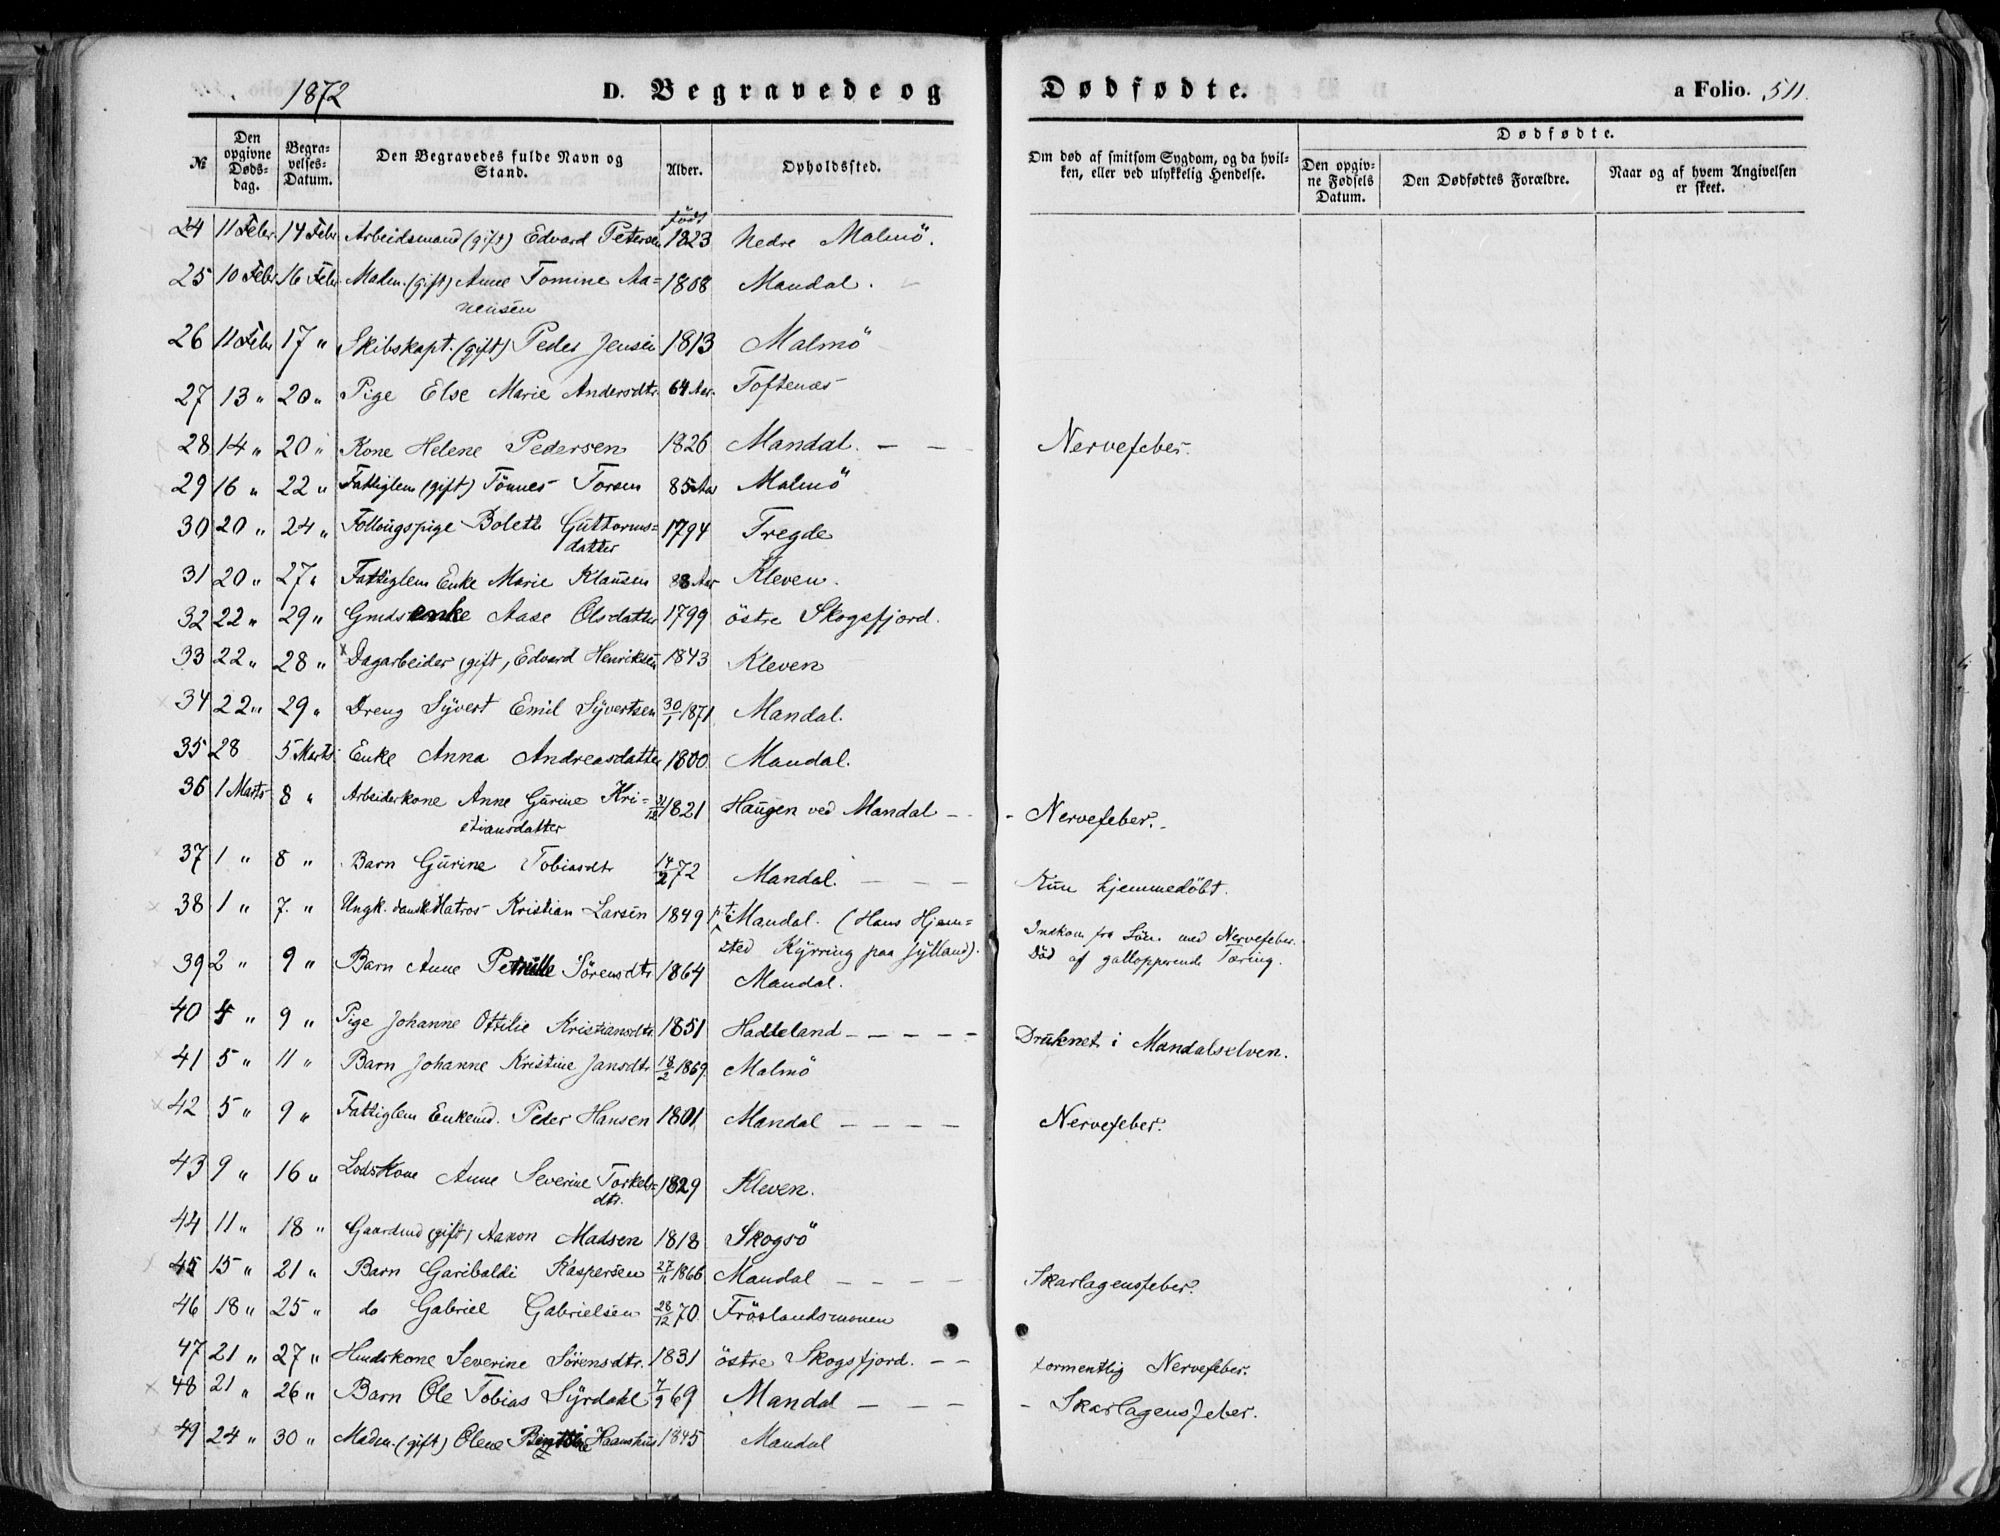 1872 D. Begravede og Dødfødte. a Folio. 511.
№ Den opgivne Døds-dag. Begra-velses-Datum. Den Begravedes fulde Navn og Stand. Alder. Opholdssted. Om død af smitsom Sygdom, og da hvil-ken, eller ved ulykkelig Hendelse. Dødfødte. Den opgiv-ne Fødsels Datum. Den Dødfødtes Forældre. Naar og af hvem Angivelsen er skeet.
født
24 11 Febr. 14 Febr. Arbeidsmand (gift) Edvard Petersen 1823 Nedre Malmö.
25 10 Febr. 16 Febr. Madm. (gift) Anne Tomine Aa- 1808 Mandal.
nensen
26 11 Febr 17 " Skibskapt. (gift) Peder Jensen 1813 Malmö
27 13 " 20 " Pige Else Marie Andersdtr. 64 Aar. Toftenæs
28 14 " 20 " Kone Helene Pedersen 1826 Mandal. — — Nervefeber.
29 16 " 22 " Fattiglem (gift) Tönnes Torsen 85 Aar Malmö
30 20 " 24 " Follougspige Bolette Guttorms- 1794 Tregde
datter
31 20 " 27 " Fattiglem Enke Marie Klausen 88 Aar Kleven.
32 22 " 29 " Gmdsenke Aase Olsdatter 1799 östre Skogsfjord.
33 22 " 28 " x Dagarbeider (gift) Edvard Henriksen 1843 Kleven
34 22 " 29 " Dreng Syvert Emil Syvertsen 30/1 1871. Mandal.
35 28 5 Marts Enke Anna Andreasdatter 1800 Mandal.
36 1 Marts 8 " Arbeiderkone Anne Gurine Kri- 1821 Haugen ved Mandal — - Nervefeber.
stiansdatter
37 1 " 8 " Barn Gurine Tobiasdtr 14/2 72 Mandal. — — — Kun hjemmedöbt.
38 1 " 7. " Ungk. dansk Matros Kristian Larsen 1849 p.t. Mandal. (Hans Hjem- Indkom fra Søn. med Nervefeber.
sted Kyrring paa Jylland). Död af gallopperende Tæring.
39 2 " 9 " Barn Anne Petrille Sörensdtr 1864 Mandal.
40 4 " 9 " Pige Johanne Ottilie Kristiansdtr. 1851 Haddeland — — — — — Druknet i Mandalselven.
41 5 " 11 " Barn Johanne Kristine Jansdtr 18/2 1869. Malmö
42 5 " 9 " Fattiglem Enkemd. Peder Hansen 1801 Mandal — — — — Nervefeber.
43 9 " 16 " Lodskone Anne Severine Torkels- 1829 Kleven.
dtr.
44 11 " 18 " Gaardmd (gift) Aanon Madsen 1818 Skogsö
45 15 " 21 " Barn Garibaldi Kaspersen 27/11 1866 Mandal — — — — Skarlagensfeber.
46 18 " 25 " do Gabriel Gabrielsen 28/12 70. Fröslandsmonen
47 21 " 27 " Hmdskone Severine Sörensdtr. 1831 östre Skogsfjord. — — formentlig Nervefeber.
48 21 " 26 " Barn Ole Tobias Syrdahl 7/9 69 Mandal — — — - Skarlagensfeber.
49 24 " 30 " Madm. (gift) Olene Haanshus 1845 Mandal